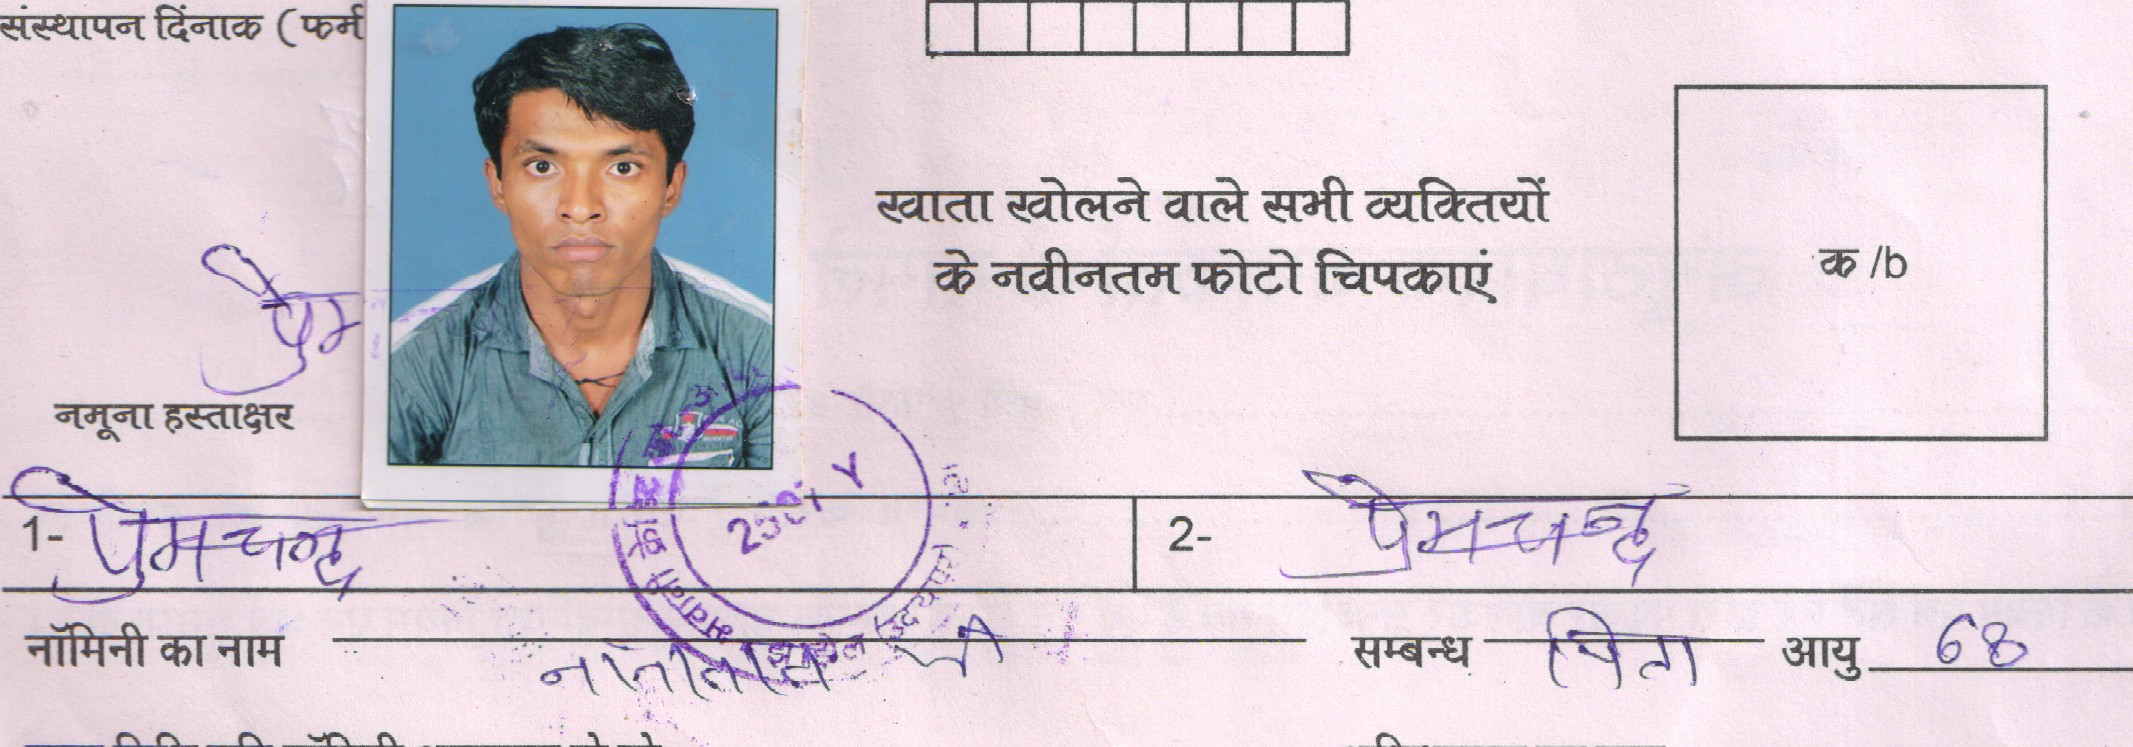 संस्थापन दिंनाक ( फर्म
खाता खोलने वाले सभी व्यक्तियों
के नवीनतम फोटो चिपकाएं
क /b
प्रेम
नमूना हस्ताक्षर
1- प्रेमचन्द्र
2- प्रेमचन्द्र
नॉमिनी का नाम
सम्बन्ध पिता आयु 68